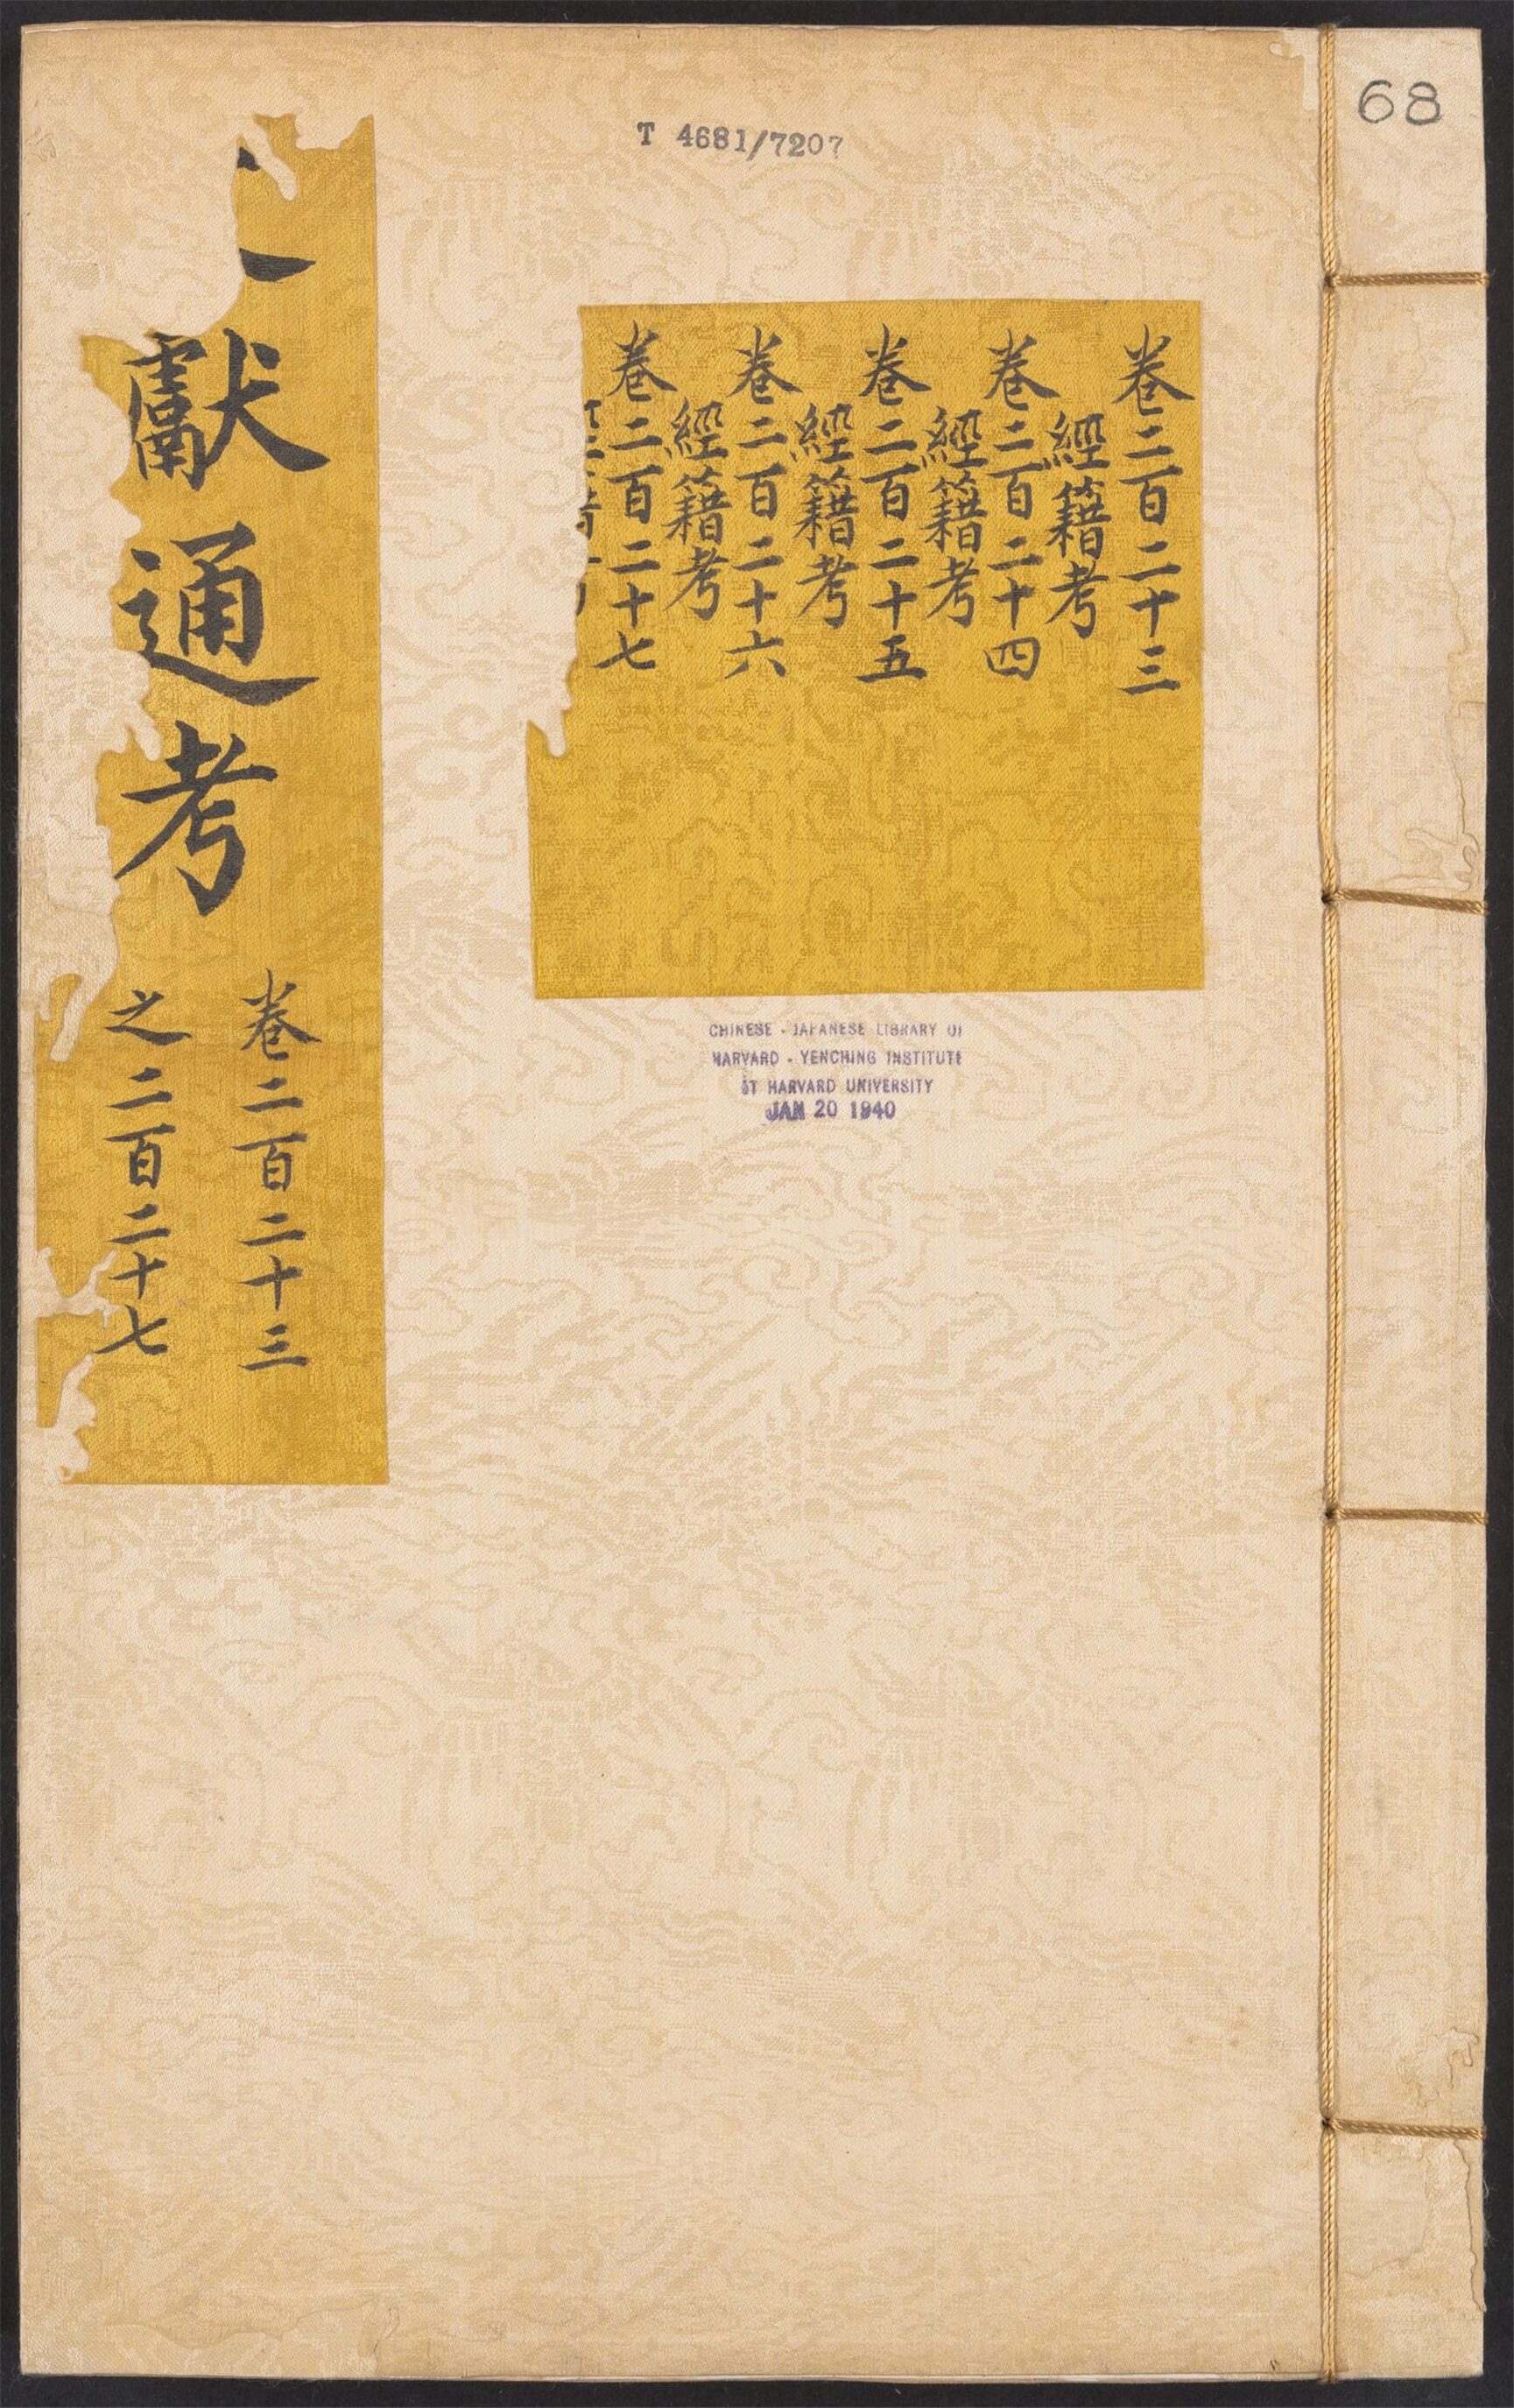 68
T 4681/7207
卷二百二十三
經籍考
卷二百二十四
經籍考
卷二百二十五
經籍考
卷二百二十六
經籍考
卷二百二十七
獻通考
卷二百二十三
之二百二十七
CHINESE - JAPANESE LIBRARY OF
HARVARD - YENCHING INSTITUTE
AT HARVARD UNIVERSITY
JAN 20 1940